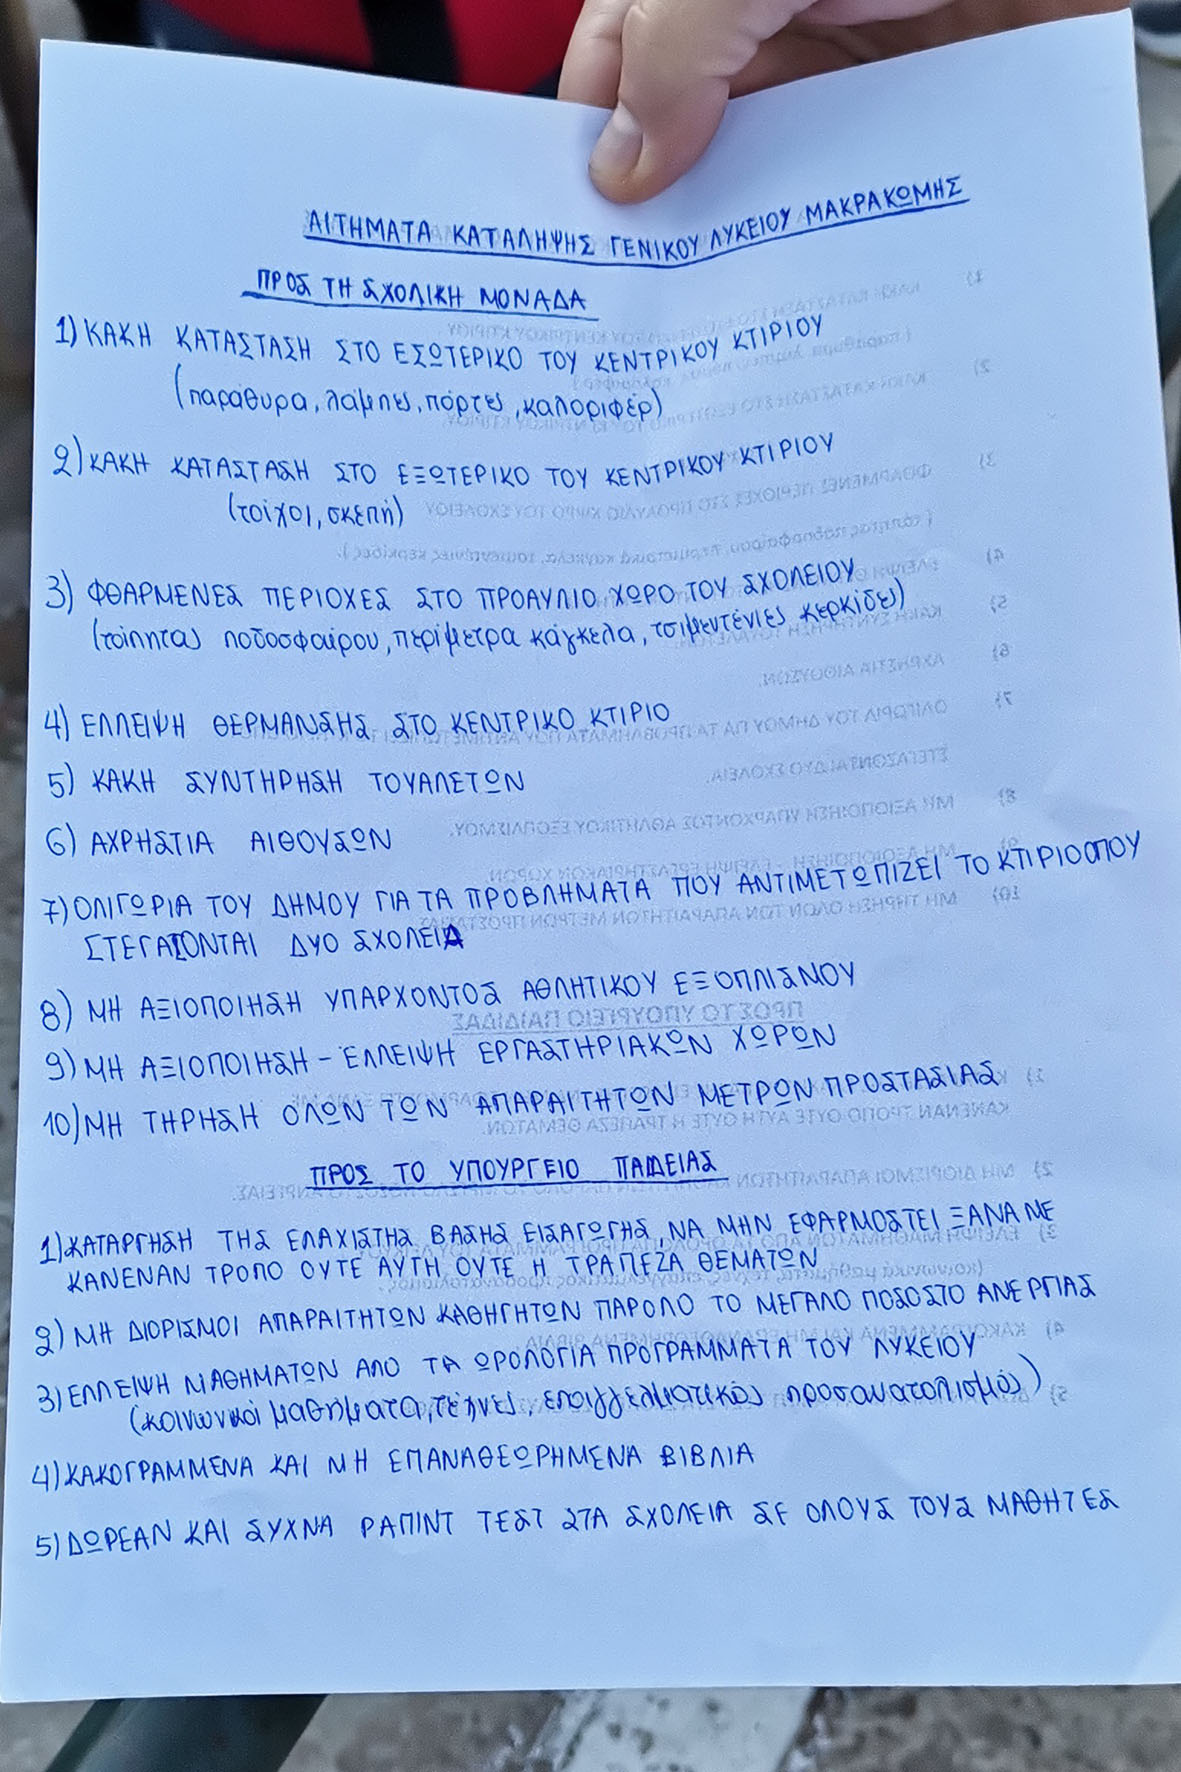 ΑΙΤΗΜΑΤΑ ΚΑΤΑΛΗΨΗΣ ΓΕΝΙΚΟΥ ΛΥΚΕΙΟΥ ΜΑΚΡΑΚΩΜΗΣ
ΠΡΟΣ ΤΗ ΣΧΟΛΙΚΗ ΜΟΝΑΔΑ
1) ΚΑΚΗ ΚΑΤΑΣΤΑΣΗ ΣΤΟ ΕΣΩΤΕΡΙΚΟ ΤΟΥ ΚΕΝΤΡΙΚΟΥ ΚΤΙΡΙΟΥ
(παράθυρα, λάμπες, πόρτες, καλοριφέρ)
2) ΚΑΚΗ ΚΑΤΑΣΤΑΣΗ ΣΤΟ ΕΞΩΤΕΡΙΚΟ ΤΟΥ ΚΕΝΤΡΙΚΟΥ ΚΤΙΡΙΟΥ
(τοίχοι, σκεπή)
3) ΦΘΑΡΜΕΝΕΣ ΠΕΡΙΟΧΕΣ ΣΤΟ ΠΡΟΑΥΛΙΟ ΧΩΡΟ ΤΟΥ ΣΧΟΛΕΙΟΥ
(τάπητας ποδοσφαίρου, περίμετρα κάγκελα, τσιμεντένιες κερκίδες)
4) ΕΛΛΕΙΨΗ ΘΕΡΜΑΝΣΗΣ ΣΤΟ ΚΕΝΤΡΙΚΟ ΚΤΙΡΙΟ
5) ΚΑΚΗ ΣΥΝΤΗΡΗΣΗ ΤΟΥΑΛΕΤΩΝ
6) ΑΧΡΗΣΤΙΑ ΑΙΘΟΥΣΩΝ
7) ΟΛΙΓΩΡΙΑ ΤΟΥ ΔΗΜΟΥ ΓΙΑ ΤΑ ΠΡΟΒΛΗΜΑΤΑ ΠΟΥ ΑΝΤΙΜΕΤΩΠΙΖΕΙ ΤΟ ΚΤΙΡΙΟ ΟΠΟΥ
ΣΤΕΓΑΖΟΝΤΑΙ ΔΥΟ ΣΧΟΛΕΙΑ
8) ΜΗ ΑΞΙΟΠΟΙΗΣΗ ΥΠΑΡΧΟΝΤΟΣ ΑΘΛΗΤΙΚΟΥ ΕΞΟΠΛΙΣΜΟΥ
9) ΜΗ ΑΞΙΟΠΟΙΗΣΗ - ΕΛΛΕΙΨΗ ΕΡΓΑΣΤΗΡΙΑΚΩΝ ΧΩΡΩΝ
10) ΜΗ ΤΗΡΗΣΗ ΟΛΩΝ ΤΩΝ ΑΠΑΡΑΙΤΗΤΩΝ ΜΕΤΡΩΝ ΠΡΟΣΤΑΣΙΑΣ
ΠΡΟΣ ΤΟ ΥΠΟΥΡΓΕΙΟ ΠΑΙΔΕΙΑΣ
1) ΚΑΤΑΡΓΗΣΗ ΤΗΣ ΕΛΑΧΙΣΤΗΣ ΒΑΣΗΣ ΕΙΣΑΓΩΓΗΣ, ΝΑ ΜΗΝ ΕΦΑΡΜΟΣΤΕΙ ΞΑΝΑ ΜΕ
ΚΑΝΕΝΑΝ ΤΡΟΠΟ ΟΥΤΕ ΑΥΤΗ ΟΥΤΕ Η ΤΡΑΠΕΖΑ ΘΕΜΑΤΩΝ
2) ΜΗ ΔΙΟΡΙΣΜΟΙ ΑΠΑΡΑΙΤΗΤΩΝ ΚΑΘΗΓΗΤΩΝ ΠΑΡΟΛΟ ΤΟ ΜΕΓΑΛΟ ΠΟΣΟΣΤΟ ΑΝΕΡΓΙΑΣ
3) ΕΛΛΕΙΨΗ ΜΑΘΗΜΑΤΩΝ ΑΠΟ ΤΑ ΩΡΟΛΟΓΙΑ ΠΡΟΓΡΑΜΜΑΤΑ ΤΟΥ ΛΥΚΕΙΟΥ
(κοινωνικά μαθήματα, τέχνες, επαγγελματικός προσανατολισμός)
4) ΚΑΚΟΓΡΑΜΜΕΝΑ ΚΑΙ ΜΗ ΕΠΑΝΑΘΕΩΡΗΜΕΝΑ ΒΙΒΛΙΑ
5) ΔΩΡΕΑΝ ΚΑΙ ΣΥΧΝΑ ΡΑΠΙΝΤ ΤΕΣΤ ΣΤΑ ΣΧΟΛΕΙΑ ΣΕ ΟΛΟΥΣ ΤΟΥΣ ΜΑΘΗΤΕΣ